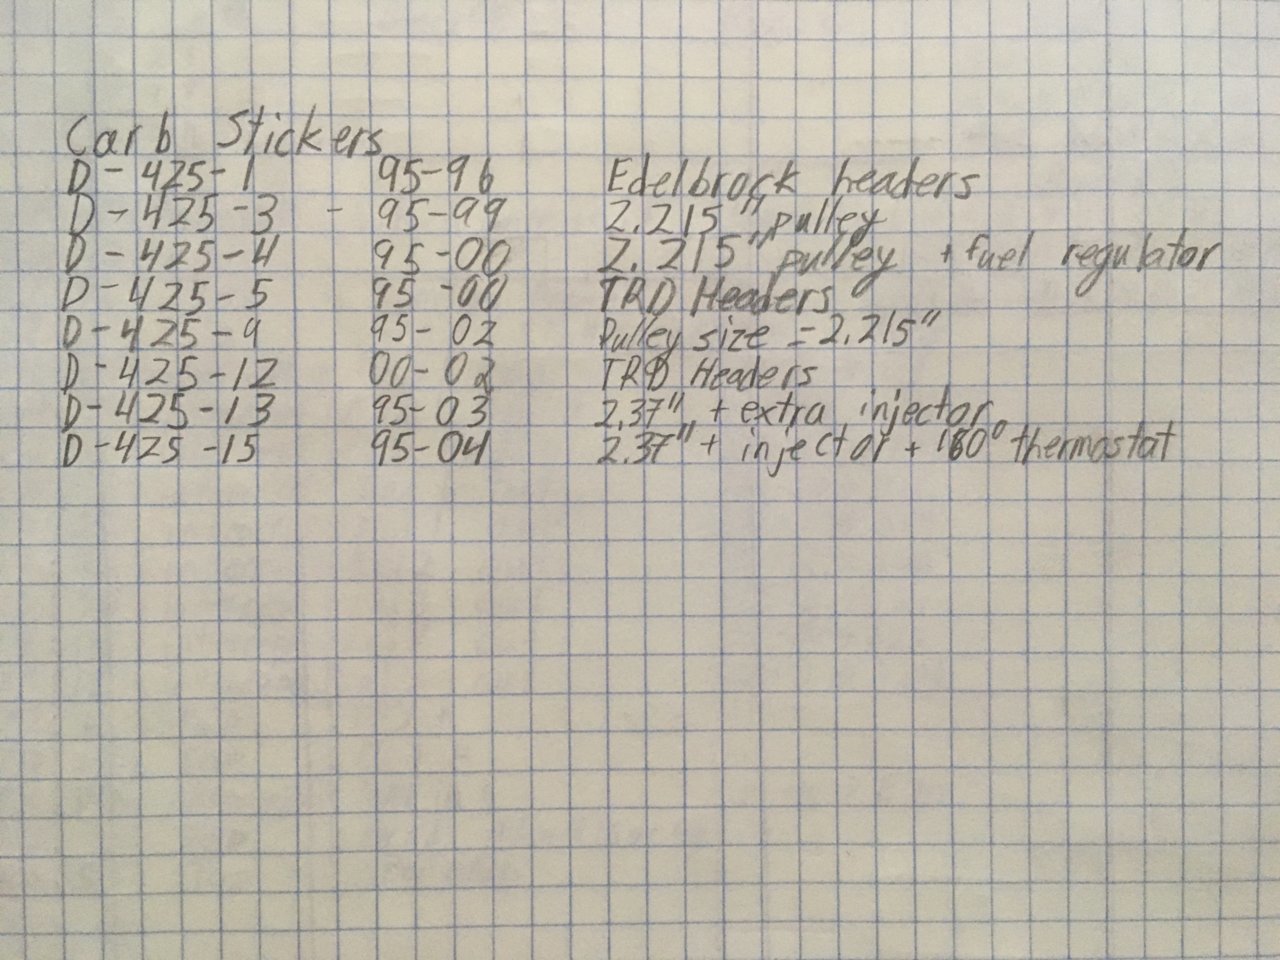 Carb Stickers
D-425-1 95-96 Edelbrock headers
D-425-3 - 95-99 2.215" pulley
D-425-4 95-00 2.215" pulley + fuel regulator
D-425-5 95-00 TRD Headers
D-425-9 95-02 Pulley size = 2.215"
D-425-12 00-02 TRD Headers
D-425-13 95-03 2.37" + extra injector
D-425-15 95-04 2.37" + injector + 180° thermostat